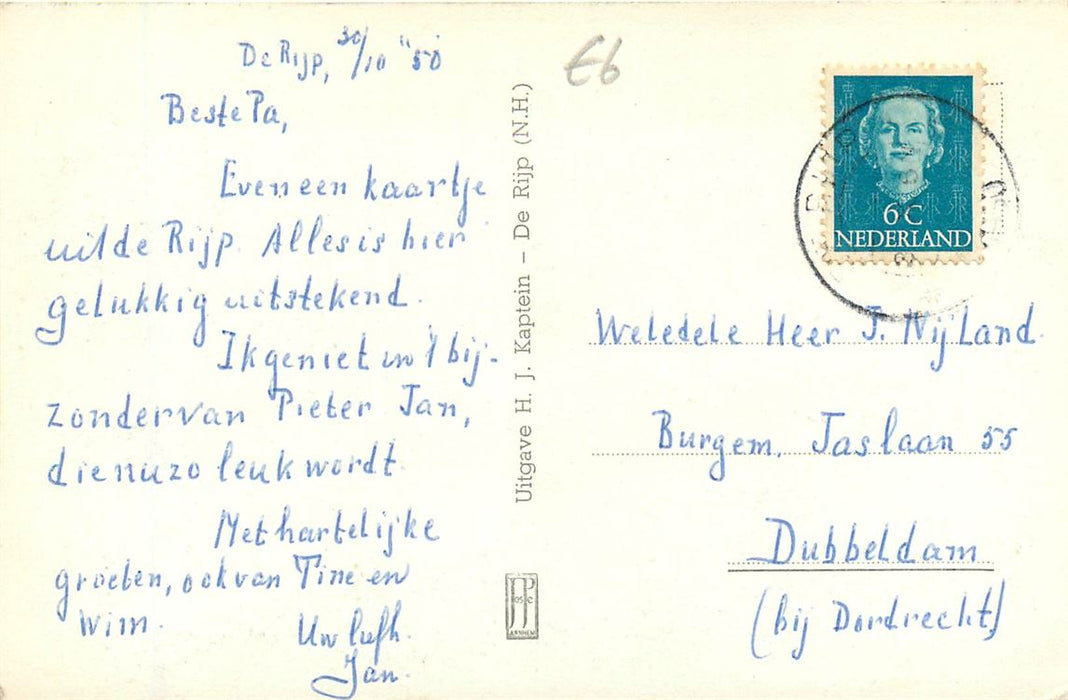 De Rijp, 30/10 "50
Beste Pa,
Even een kaartje
uit de Rijp. Alles is hier
gelukkig uitstekend.
Ik geniet in 't bij-
zonder van Pieter Jan,
die nu zo leuk wordt.
Met hartelijke
groeten, ook van Tine en
Wim.
Uw liefh.
Jan.
Uitgave H. J. Kaptein – De Rijp (N.H.)
ARNHEM
€6
6 C
NEDERLAND
Weledele Heer J. Nijland
Burgem. Jaslaan 55
Dubbeldam
(bij Dordrecht)